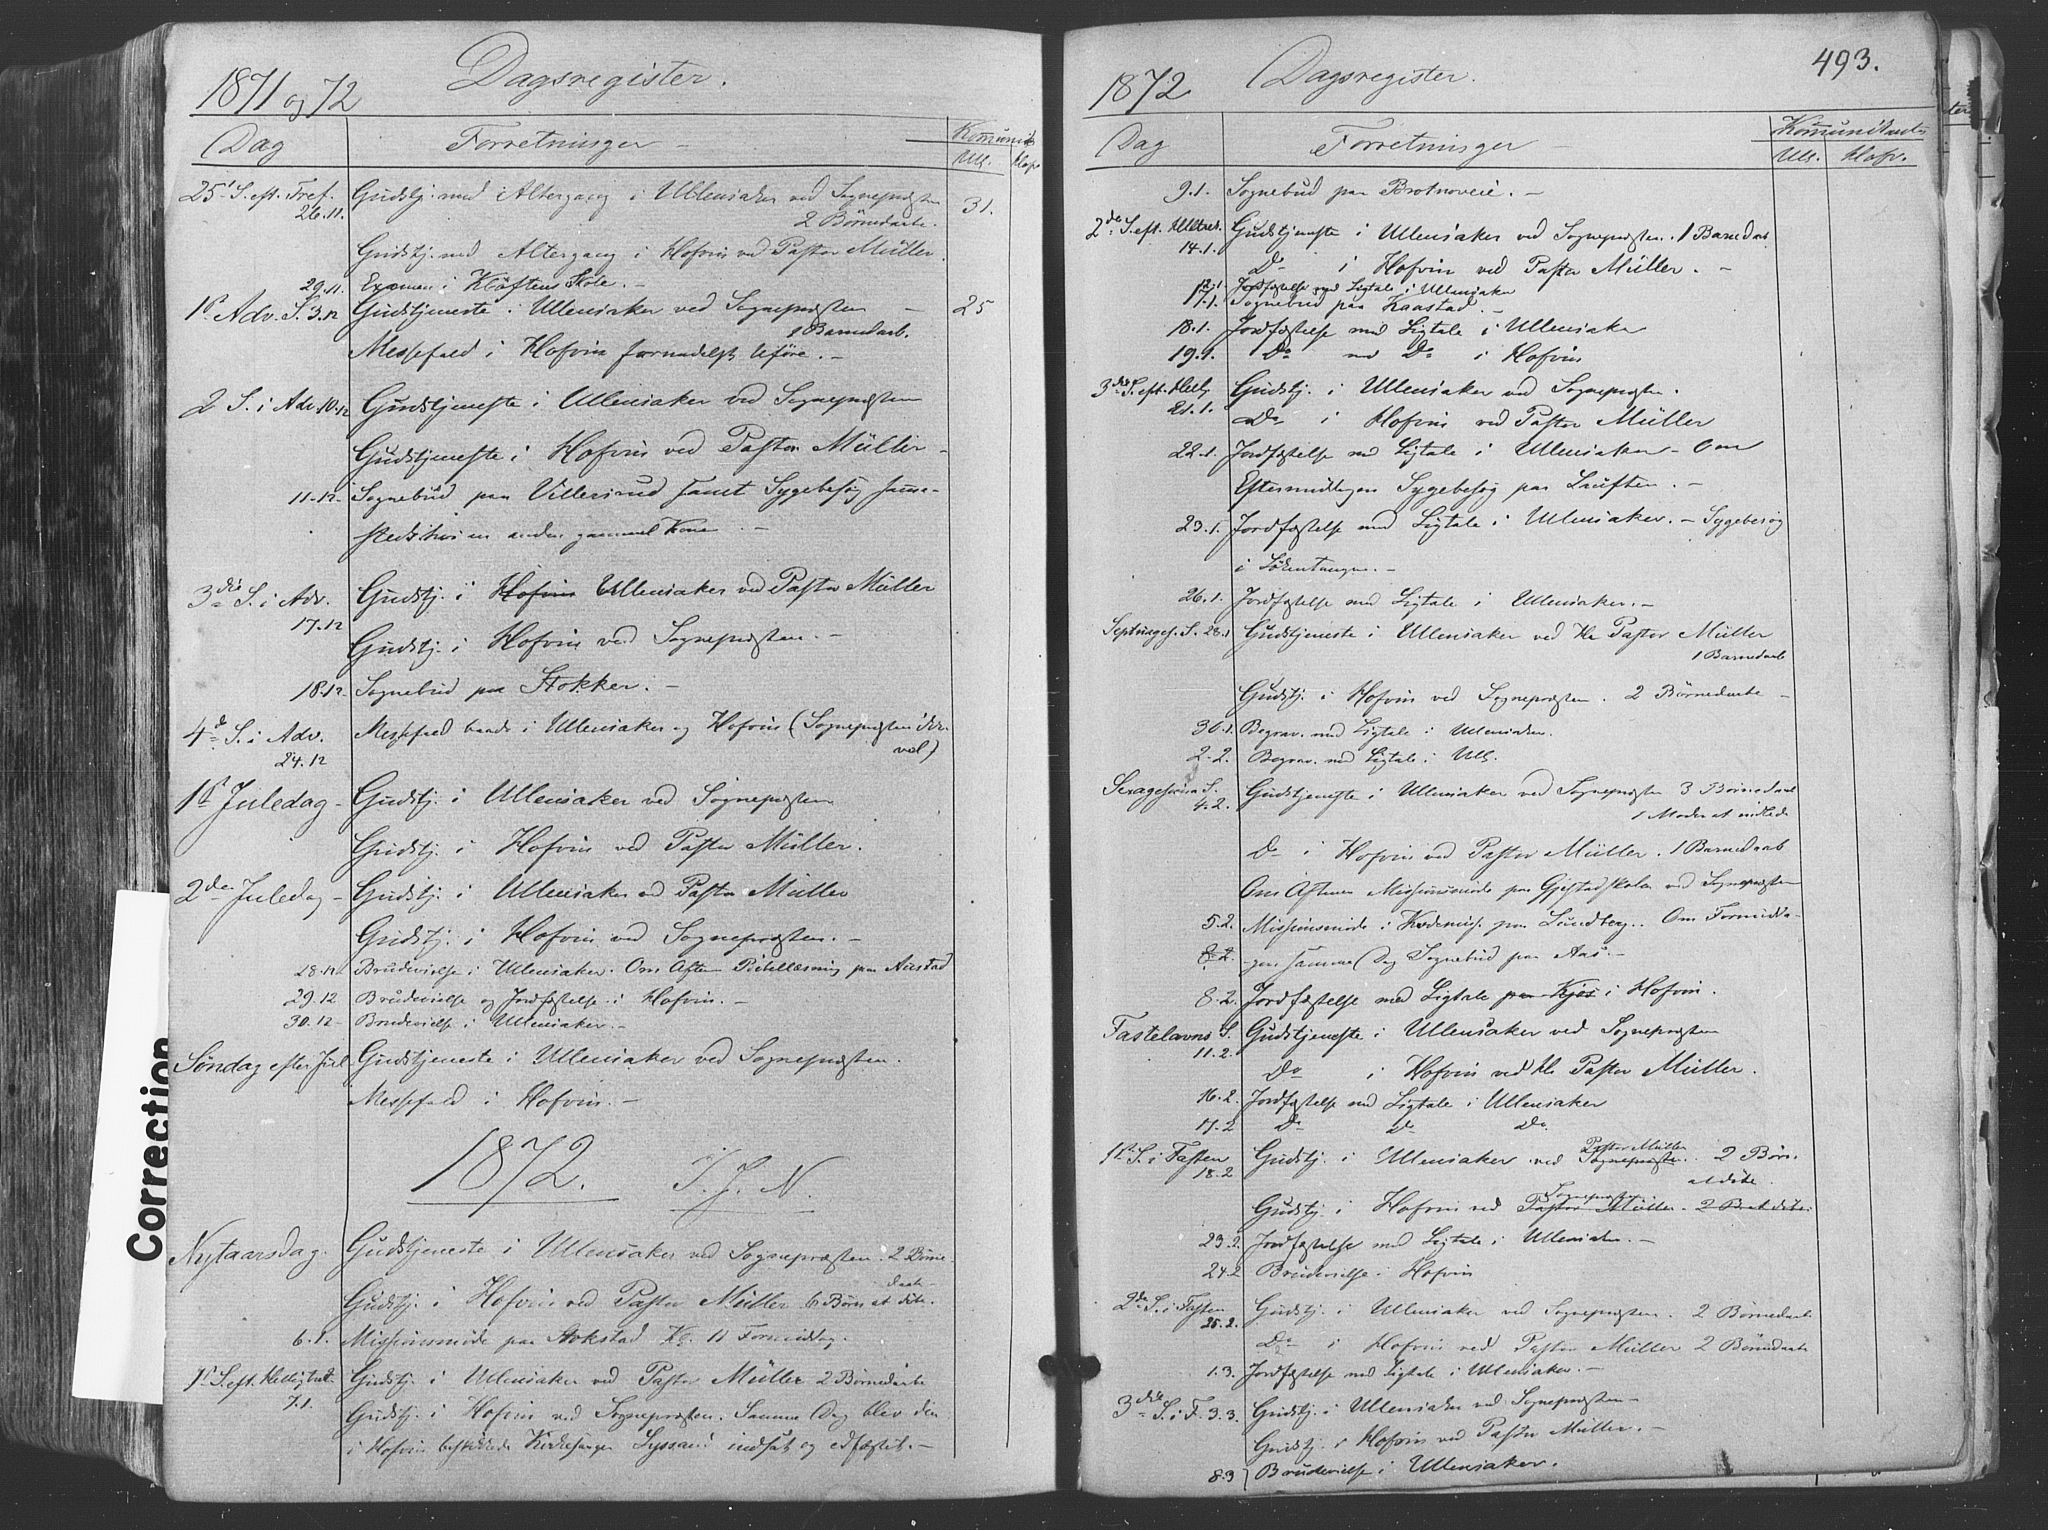 1871 og 72
Dagsregister.
Dag
Forretninger
Kommunik.
Ull. Hofv.
25' S. eft. Tref. Gudstj. med Altergang i Ullensaker ved Sognepræsten 31.
26.11. 2 Børnedaabe.
Gudstj. med Altergang i Hofvin ved Pastor Müller.
29.11. Examen i Kløftens Skole. –
1ste Adv. S. 3.12 Gudstjeneste i Ullensaker ved Sognepræsten – 25
1 Barnedaab.
Messefald i Hofvin formedelst Uføre. –
2 S. i Adv. 10.12 Gudstjeneste i Ullensaker ved Sognepræsten
Gudstjeneste i Hofvin ved Pastor Müller –
11.12. Sognebud paa Villersrud samt Sygebesøg samme-
steds hos en anden gammel Kone –
3die S. i Adv. Gudstj. i Hofvin Ullensaker ved Pastor Müller
17.12
Gudstj. i Hofvin ved Sognepræsten. –
18.12 Sognebud paa Stokker. –
4de S. i Adv. Messefald baade i Ullensaker og Hofvin (Sognepræsten ikke
24.12 vel)
1ste Juledag – Gudstj. i Ullensaker ved Sognepræsten
Gudstj. i Hofvin ved Pastor Müller.
2den Juledag – Gudstj. i Ullensaker ved Pastor Müller
Gudstj. i Hofvin ved Sognepræsten. –
28.12 Brudevielse i Ullensaker. Om Aften Bibellæsning paa Austad
29.12 Brudevielse og Jordfæstelse i Hofvin. –
30.12 – Brudevielse i Ullensaker. –
Søndag efter Jul Gudstjeneste i Ullensaker ved Sognepræsten.
Messefald i Hofvin. –
1872. I. J. N.
Nytaarsdag. Gudstjeneste i Ullensaker ved Sognepræsten. 2 Børne-
daab –
Gudstj. i Hofvin ved Pastor Müller 6 Børn at døbe.
6.1. Missionsmøde paa Stokstad Kl. 11 Formiddag.
1ste S. eft. Hellig Trek. Gudstj. i Ullensaker ved Pastor Müller 2 Børnedaabe
7.1.
Gudstj. i Hofvin ved Sognepræsten. Samme Dag blev den
i Hofvin beskikkede Kirkesanger Lyssand indsat og edfæstet. –
1872
Dagsregister.
493.
Dag
Forretninger
Kommunikants
Ull. Hofv.
9.1. Sognebud paa Brotnoveie. –
2den S. eft. Helltrek. Gudstjeneste i Ullensaker ved Sognepræsten. 1 Barnedaab
14.1.
Do i Hofvin ved Pastor Müller. –
Jordfæstelse med Ligtale i Ullensaker
17.1. Sognebud paa Kaastad. –
18.1. Jordfæstelse med Ligtale i Ullensaker
19.1. Do med Do i Hofvin
3die S. eft. Hellig Gudstj. i Ullensaker ved Sognepræsten.
21.1.
Do i Hofvin ved Pastor Müller
22.1. Jordfæstelse med Ligtale i Ullensaker – Om
Eftermiddagen Sygebesøg paa Lauften. –
23.1. Jordfæstelse med Ligtale i Ullensaker. – Sygebesøg
i Løkentangen. –
26.1. Jordfæstelse med Ligtale i Ullensaker. –
Septuages. S. 28.1 Gudstjeneste i Ullensaker ved Hr Pastor Müller
1 Barnedaab
Gudstj. i Hofvin ved Sognepræsten. 2 Børnedaabe –
30.1. Begrav. med Ligtale i Ullensaker.
2.2. Begrav. med Ligtale i Ull.
Sexagesima S. Gudstjeneste i Ullensaker ved Sognepræsten 3 Børnedaab
4.2. 1 Moder at indlede
Do i Hofvin ved Pastor Müller. 1 Barnedaab
Om Aftenen Missionsmøde paa Gjestadskolen ved Sognepræsten
5.2. Missionsmøde i paa Lundberg. Om Formidda-
8.2. gen samme Dag Sognebud paa Aas. –
8.2. Jordfæstelse med Ligtale paa Kjos i Hofvin.
Fastelavns S. Gudstjeneste i Ullensaker ved Sognepræsten
11.2.
Do i Hofvin ved Hr Pastor Müller.
16.2. Jordfæstelse med Ligtale i Ullensaker
17.2 Do Do Do.
Pastor Müller
1ste S. i Fasten Gudstj. i Ullensaker ved Sognepræsten. 2 Børn
18.2 at døbe.
Sognepræsten
Gudstj. i Hofvin ved Pastor Müller. 2 B. at døbe.
23.2 Jordfæstelse med Ligtale i Ullensaker. –
24.2 Brudevielse i Hofvin
2den S. i Fasten Gudstj. i Ullensaker ved Sognepræsten. 2 Børnedaab
25.2.
Do i Hofvin ved Pastor Müller 2 Børnedaabe
1.3. Jordfæstelse med Ligtale i Ullensaker. –
3die S. i F. 3.3. Gudstj. i Ullensaker ved Sognepræsten –
Gudstj. i Hofvin ved Pastor Müller. –
8.3 Brudevielse i Ullensaker.
Correction